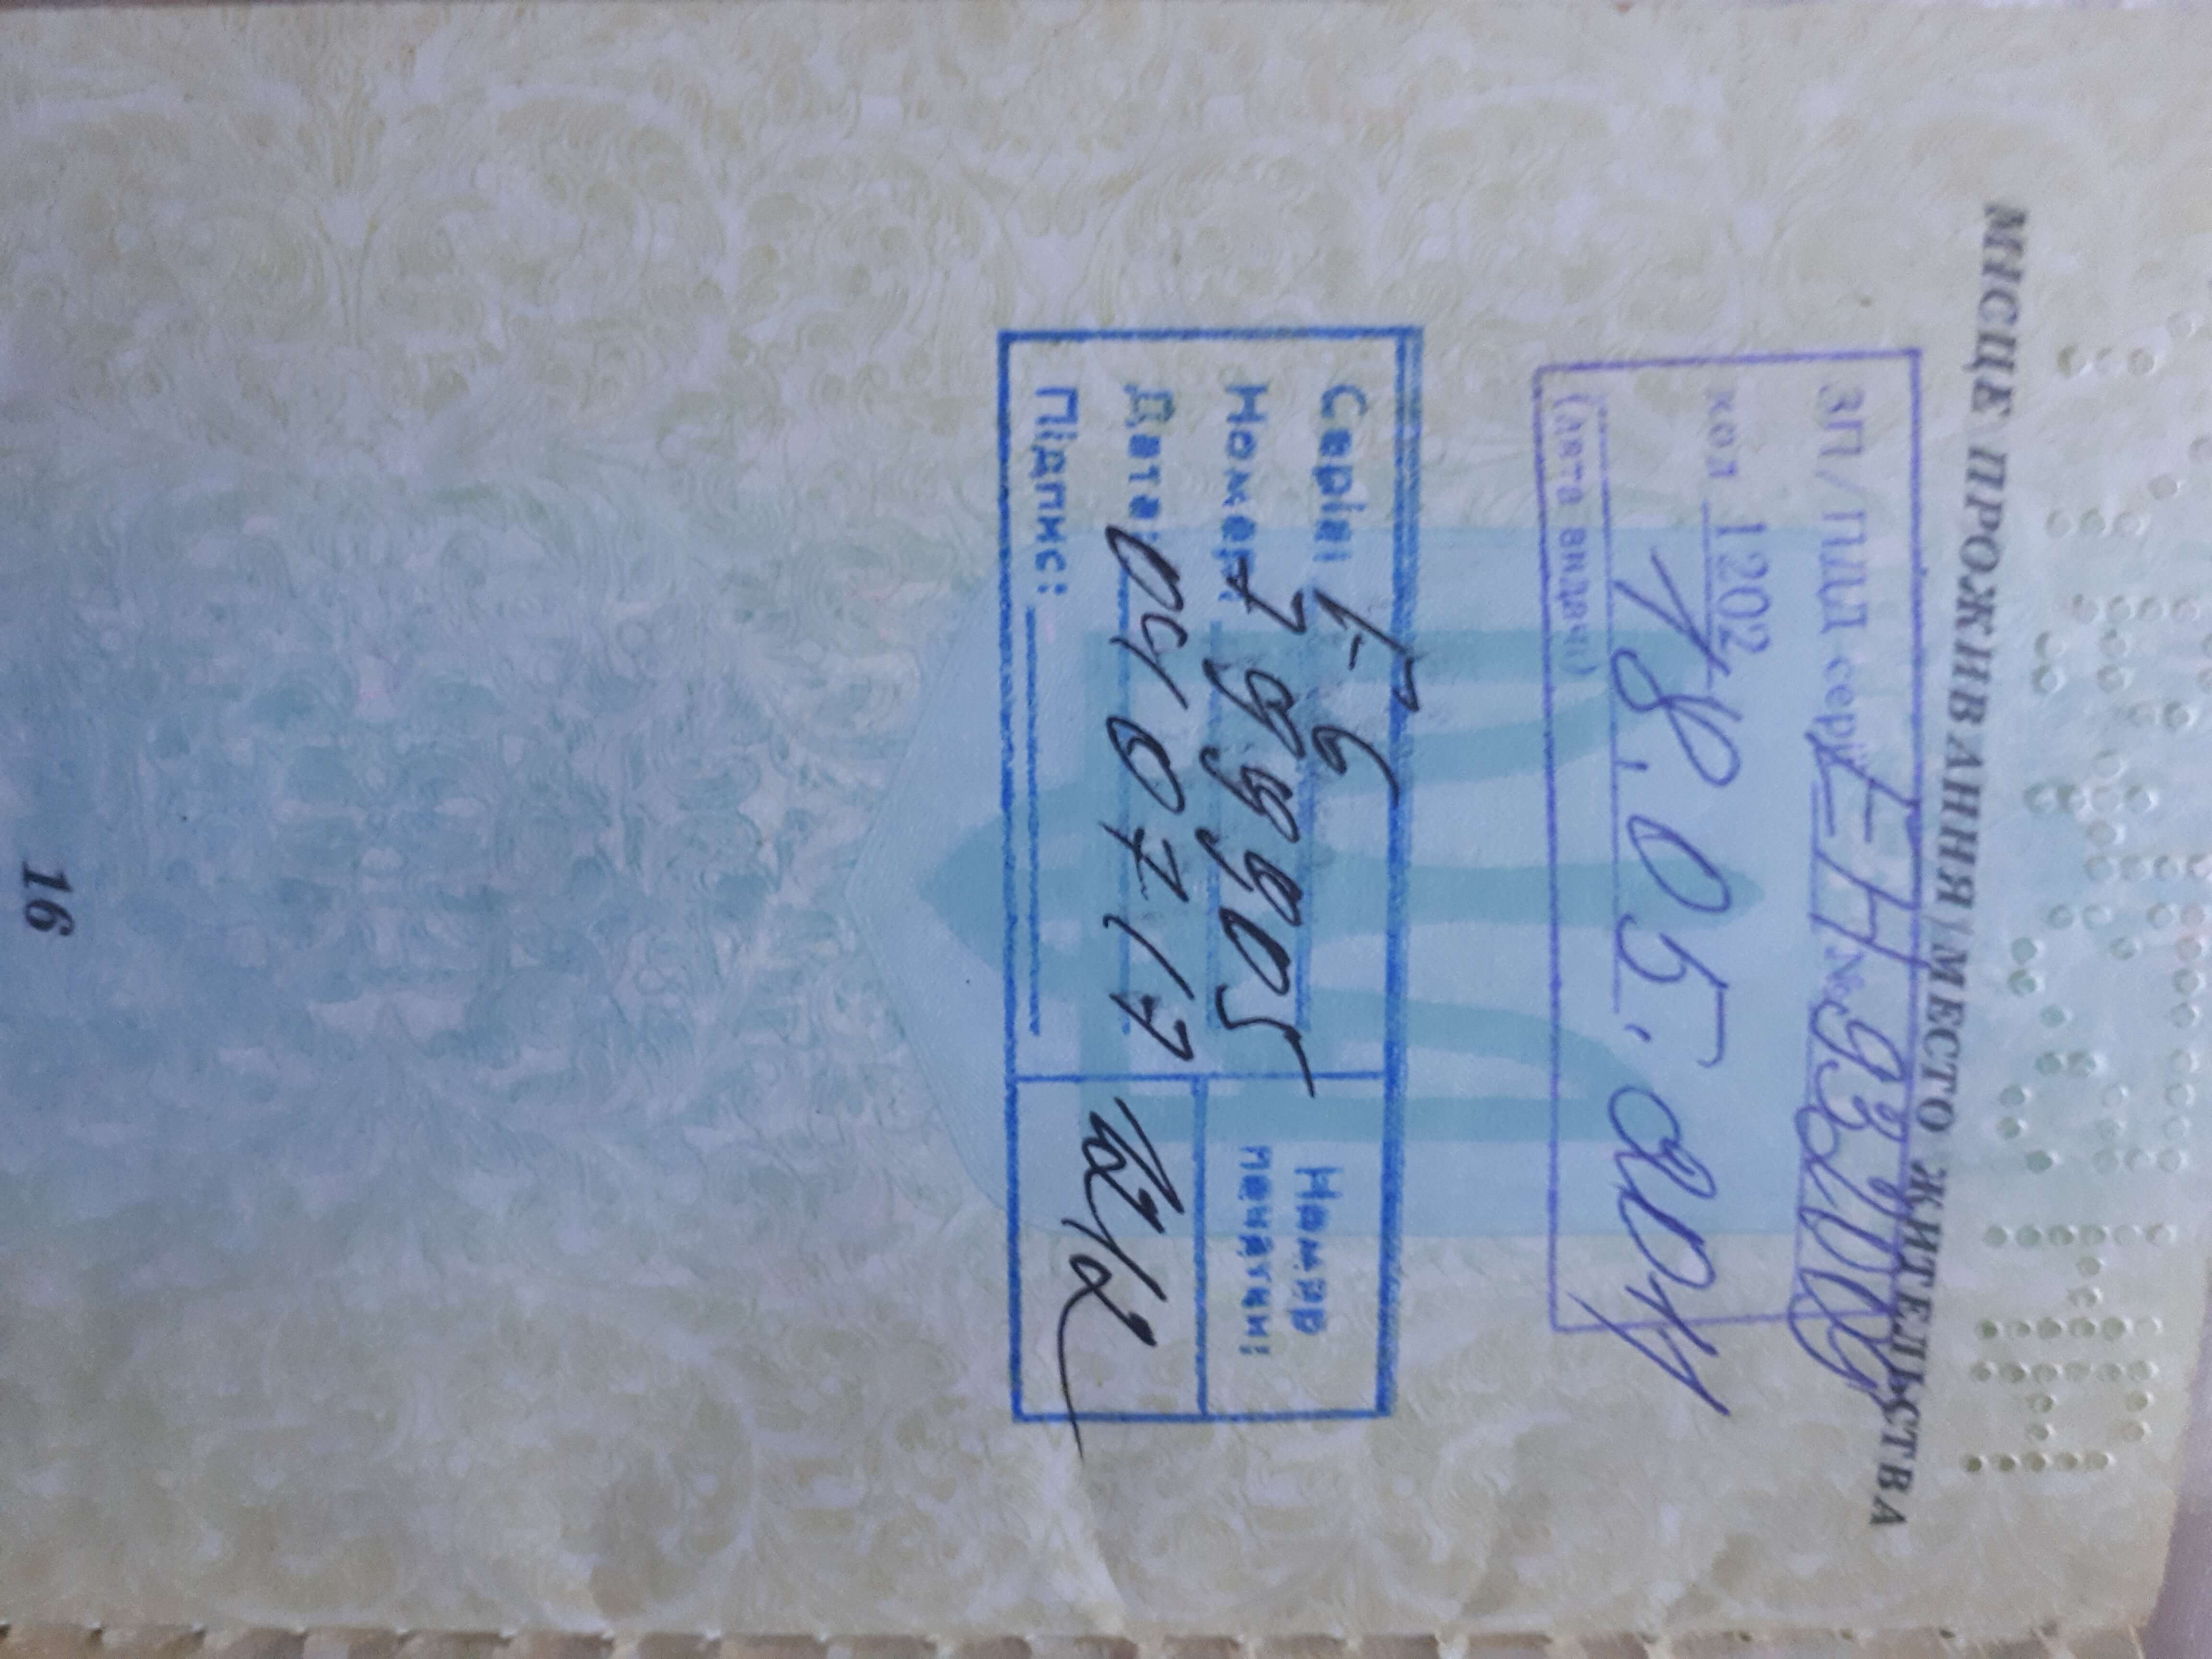 МІСЦЕ ПРОЖИВАННЯ/МЕСТО ЖИТЕЛЬСТВА
ЗП/ПДД серія ЕН №
код 1202
18.05.2011
(дата видачі)
Серія: FG
Номер:
Дата: 04 07 17
Підпис:
Номер
печатки:
16